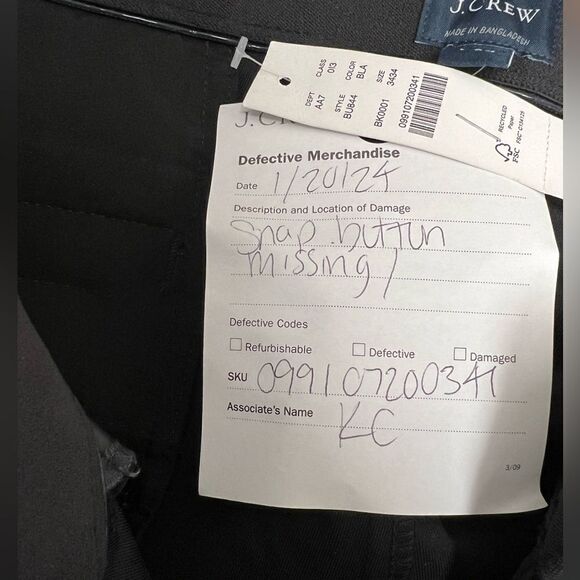 J.CREW
MADE IN BANGLADESH
DEPT CLASS
AA7 013
STYLE COLOR
BU844 BLA
SIZE
BK0001 3434
099107200341
RECYCLED
Paper
FSC
J.C
Defective Merchandise
Date 1/20/24
Description and Location of Damage
Snap button
missing /
Defective Codes
Refurbishable Defective Damaged
SKU 099107200341
Associate's Name KC
3/09